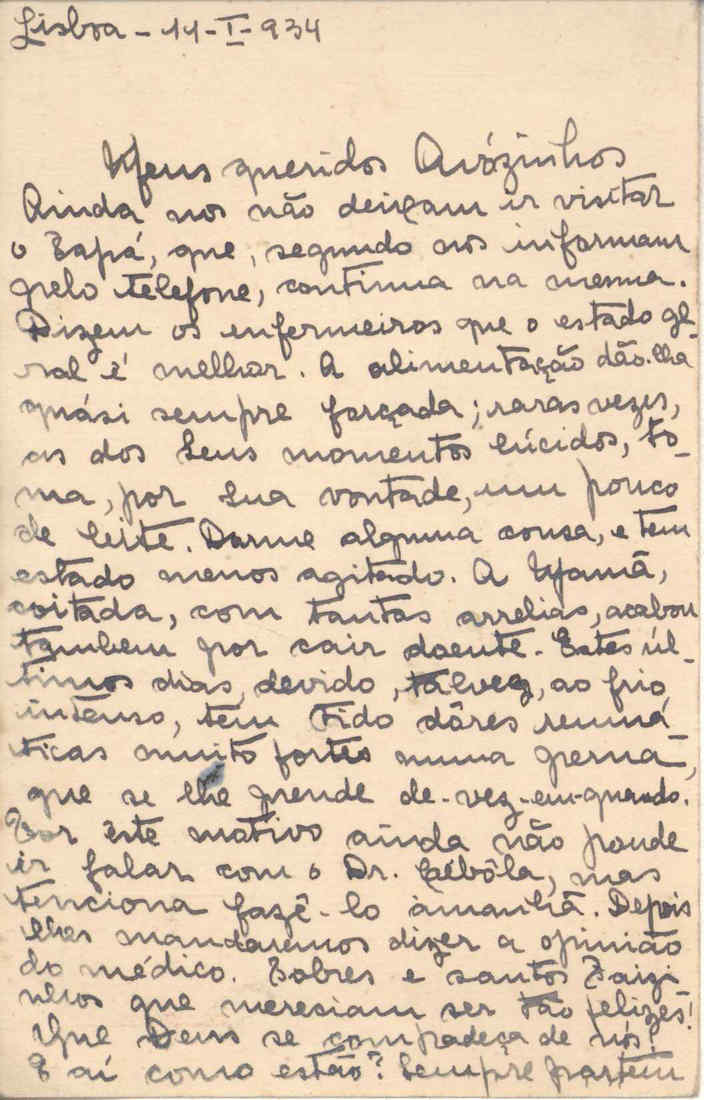 Lisboa - 11-I-934
Meus queridos Avózinhos
Ainda nos não deixam ir visitar
o Papá, que, segundo nos informam
pelo telefone, continua na mesma.
Dizem os enfermeiros que o estado ge-
ral é melhor. A alimentação dão-lha
quási sempre forçada; raras vezes,
as dos seus momentos lúcidos, to-
ma, por sua vontade, um pouco
de leite. Dorme alguma cousa, e tem
estado menos agitado. A Mamã,
coitada, com tantas arrelias, acabou
tambem por cair doente. Estes úl-
timos dias, devido, talvez, ao frio
intenso, tem tido dôres reumá-
ticas muito fortes numa perna,
que se lhe prende de-vez-em-quando.
Por êste motivo ainda não poude
ir falar com o Dr. Cebôla, mas
tenciona fazê-lo àmanhã. Depois
lhes mandaremos dizer a opinião
do médico. Pobres e santos Paizi
nhos que mereciam ser tão felizes!
Que Deus se compadeça de nós!
E aí como estão? Sempre partem